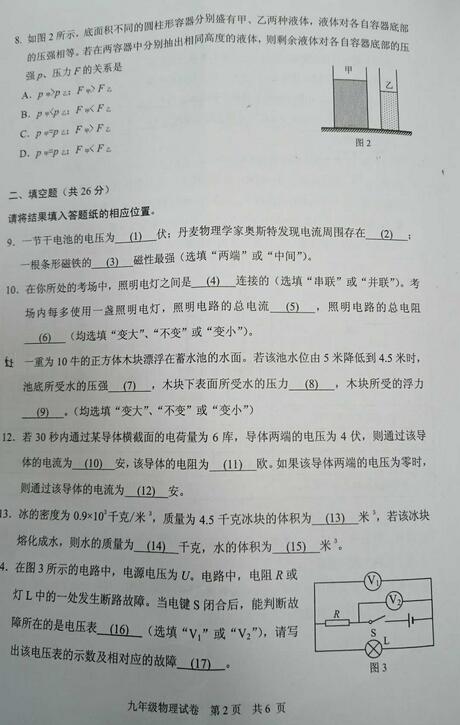 8. 如图 2 所示，底面积不同的圆柱形容器分别盛有甲、乙两种液体，液体对各自容器底部
的压强相等。若在两容器中分别抽出相同高度的液体，则剩余液体对各自容器底部的压
强 p、压力 F 的关系是
A. p甲>p乙；F甲>F乙
B. p甲<p乙；F甲<F乙
C. p甲=p乙；F甲>F乙
D. p甲=p乙；F甲<F乙
甲
乙
图 2
二、填空题（共 26 分）
请将结果填入答题纸的相应位置。
9. 一节干电池的电压为 (1) 伏；丹麦物理学家奥斯特发现电流周围存在 (2) ；
一根条形磁铁的 (3) 磁性最强（选填“两端”或“中间”）。
10. 在你所处的考场中，照明电灯之间是 (4) 连接的（选填“串联”或“并联”）。考
场内每多使用一盏照明电灯，照明电路的总电流 (5) ，照明电路的总电阻
(6) （均选填“变大”、“不变”或“变小”）。
一重为 10 牛的正方体木块漂浮在蓄水池的水面。若该池水位由 5 米降低到 4.5 米时，
池底所受水的压强 (7) ，木块下表面所受水的压力 (8) ，木块所受的浮力
(9) 。（均选填“变大”、“不变”或“变小”）
12. 若 30 秒内通过某导体横截面的电荷量为 6 库，导体两端的电压为 4 伏，则通过该导
体的电流为 (10) 安，该导体的电阻为 (11) 欧。如果该导体两端的电压为零时，
则通过该导体的电流为 (12) 安。
13. 冰的密度为 0.9×10³千克/米³，质量为 4.5 千克冰块的体积为 (13) 米³，若该冰块
熔化成水，则水的质量为 (14) 千克，水的体积为 (15) 米³。
4. 在图 3 所示的电路中，电源电压为 U。电路中，电阻 R 或
灯 L 中的一处发生断路故障。当电键 S 闭合后，能判断故
障所在的是电压表 (16) （选填“V₁”或“V₂”），请写
出该电压表的示数及相对应的故障 (17) 。
V₁
V₂
R
S
L
图 3
九年级物理试卷 第 2 页 共 6 页